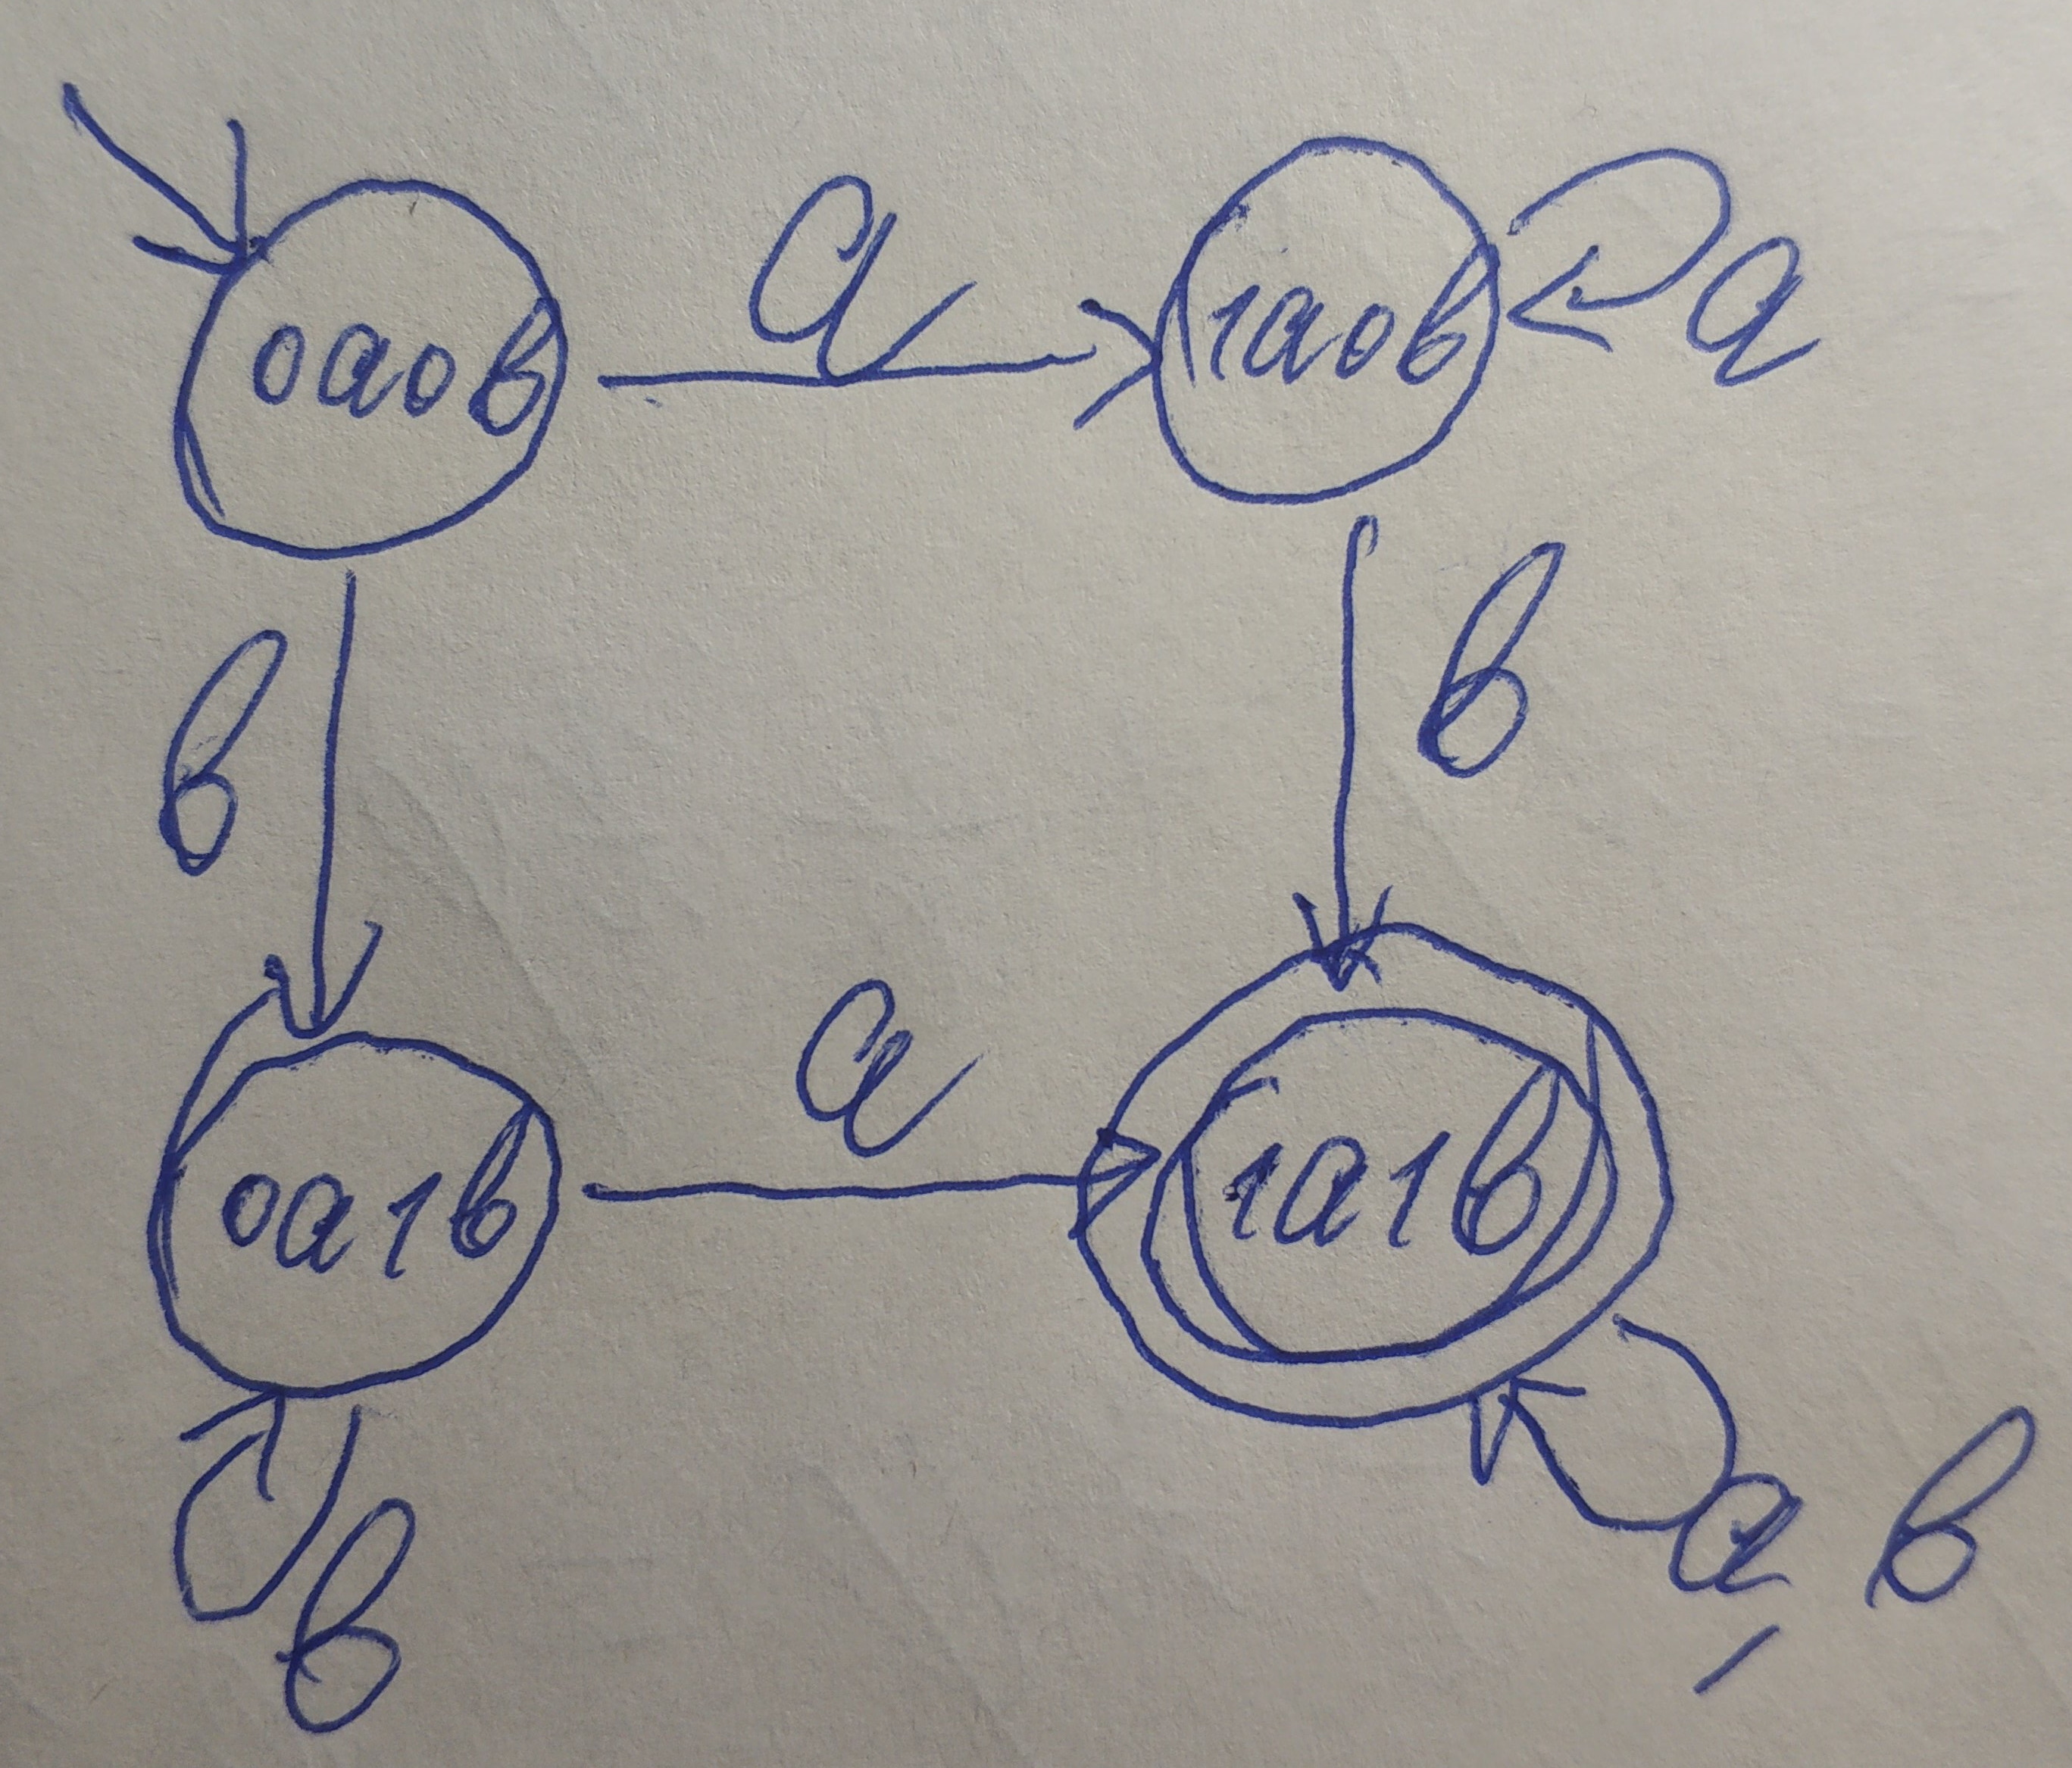 a
0a0b
1a0b
a
b
b
a
0a1b
1a1b
b
a, b